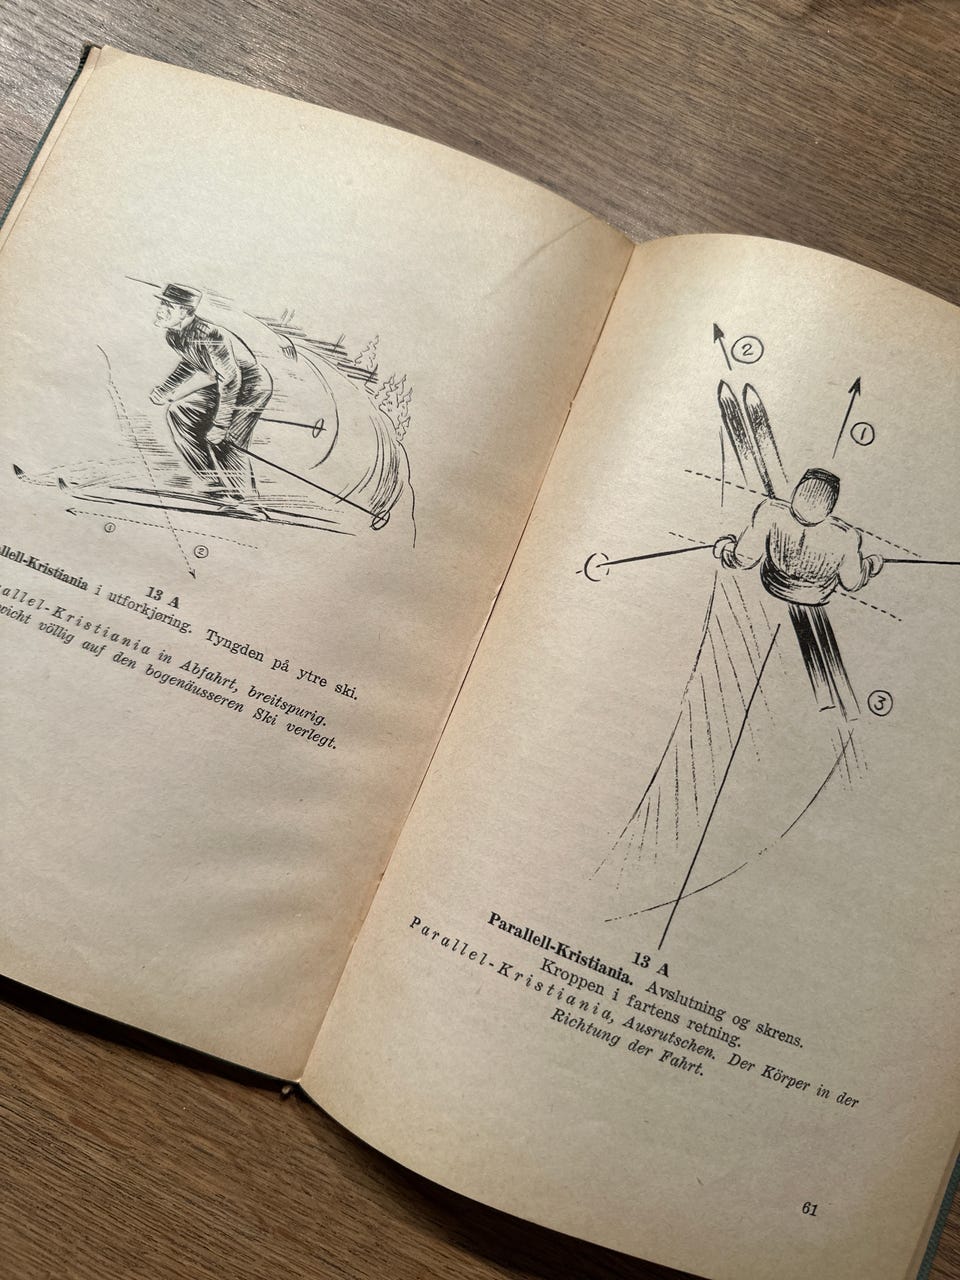 ①
②
13 A
i utforkjøring. Tyngden på ytre ski.
in Abfahrt, breitspurig.
völlig auf den bogenäusseren Ski verlegt.
②
①
③
13 A
Parallell-Kristiania. Avslutning og skrens.
Kroppen i fartens retning.
Parallel-Kristiania, Ausrutschen. Der Körper in der
Richtung der Fahrt.
61